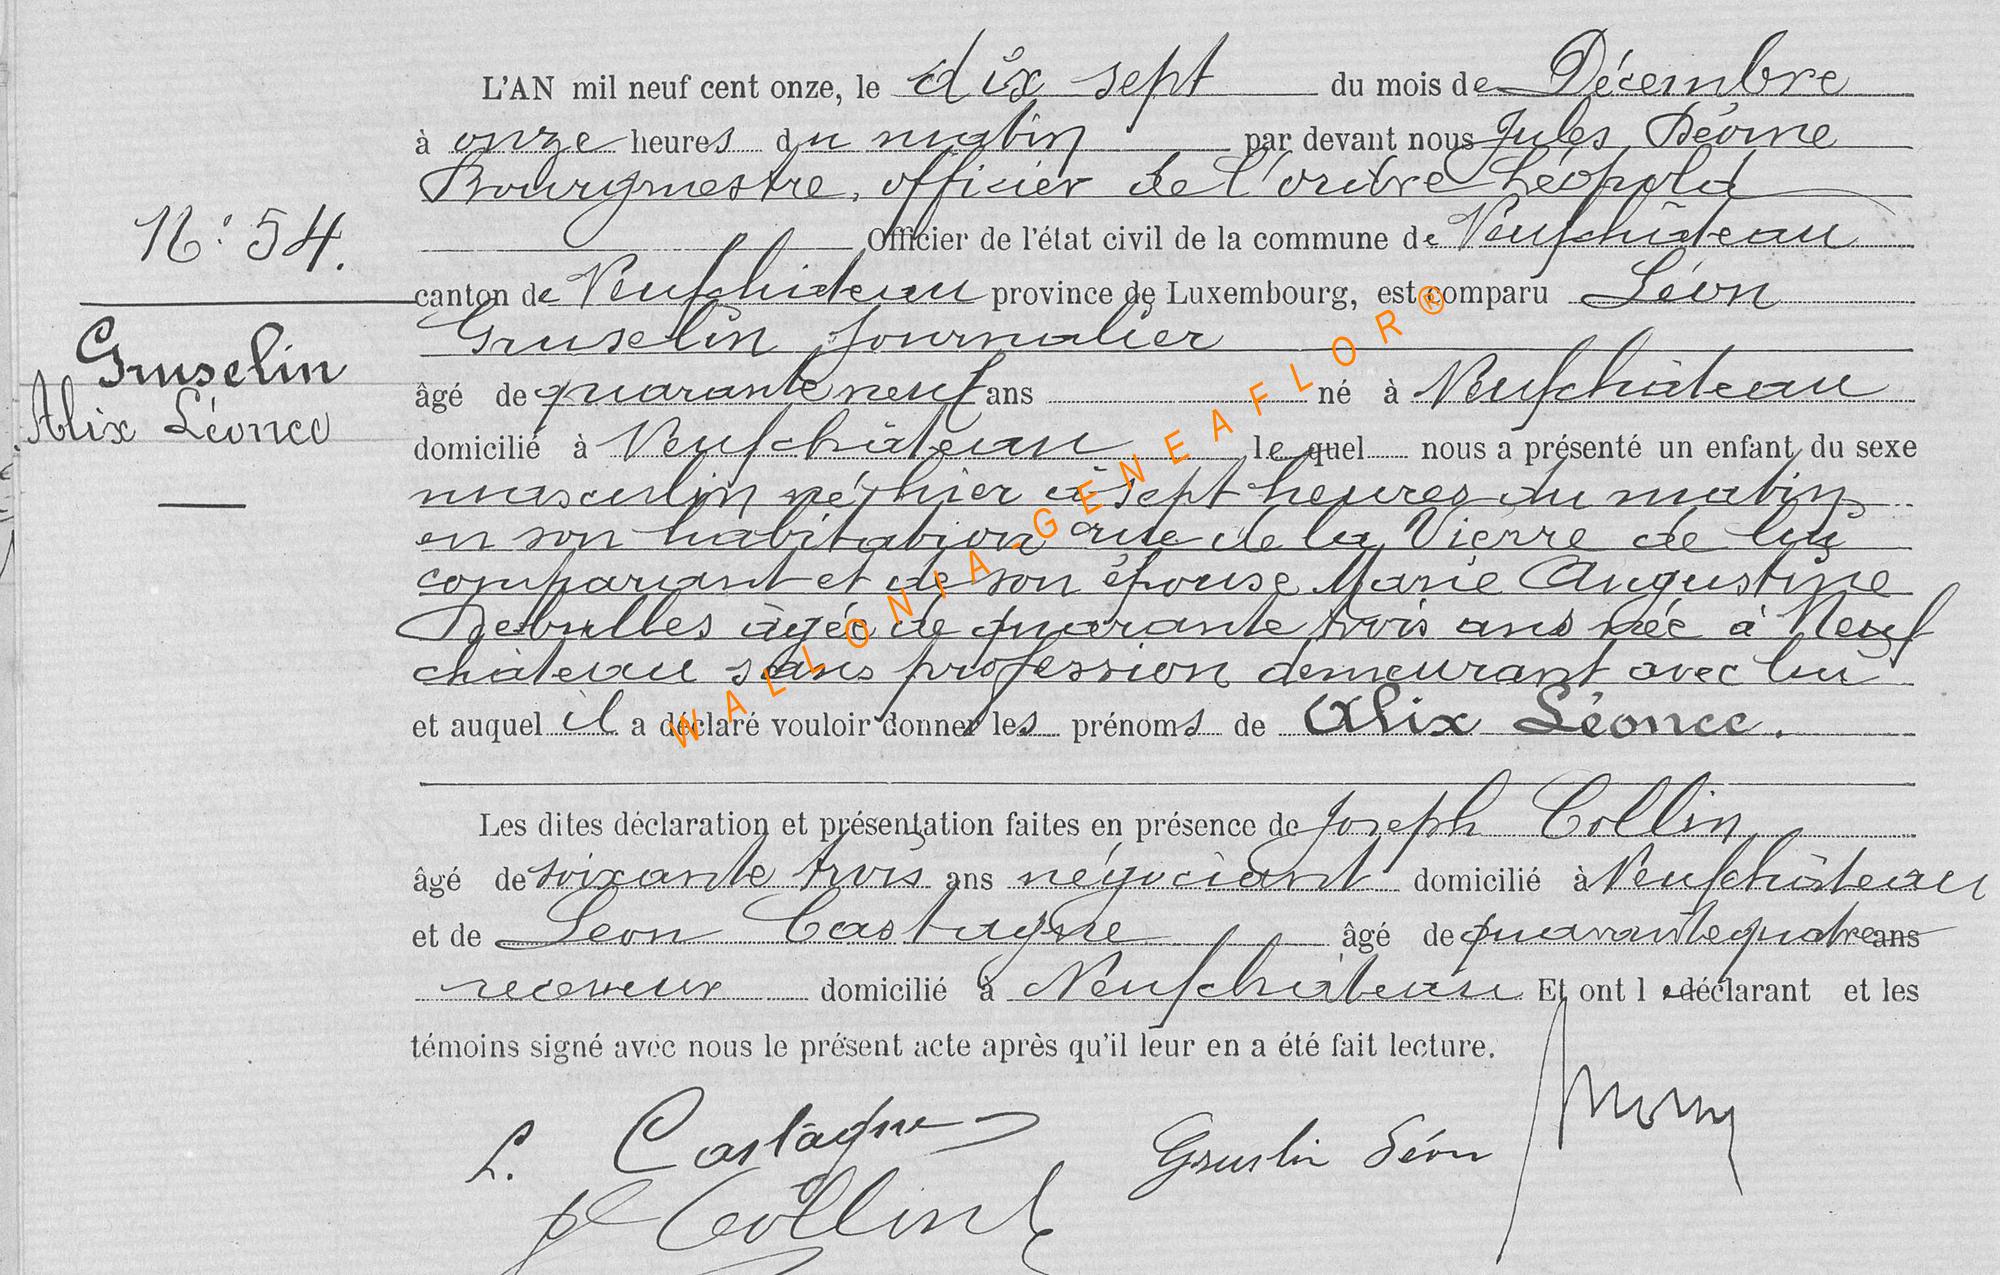 L'AN mil neuf cent onze, le dix sept du mois de Décembre
à onze heures du matin par devant nous Jules
Bourgmestre, officier de l'ordre Léopold
Officier de l'état civil de la commune de Neufchâteau
canton de Neufchâteau province de Luxembourg, est comparu Léon
Gruselin journalier
âgé de quarante neuf ans né à Neufchâteau
domicilié à Neufchâteau lequel nous a présenté un enfant du sexe
masculin né hier à sept heures du matin
en son habitation rue de la Vierre de lui
comparant et de son épouse Marie Augustine
âgée de quarante trois ans née à Neuf
château sans profession demeurant avec lui
et auquel il a déclaré vouloir donner les prénoms de Alix Léonce.
N° 54.
Gruselin
Alix Léonce
Les dites déclaration et présentation faites en présence de Joseph Collin
âgé de soixante trois ans négociant domicilié à Neufchâteau
et de Léon Castagne âgé de quarante quatre ans
receveur domicilié à Neufchâteau Et ont le déclarant et les
témoins signé avec nous le présent acte après qu'il leur en a été fait lecture.
L. Castagne
Gruslin Léon
Collin
WALLONIA-GENEAFLOR®